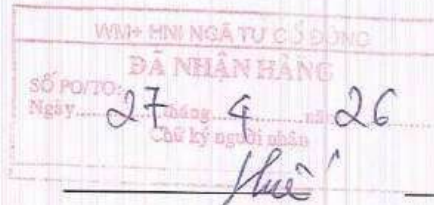 WM+ HNI NGÃ TƯ CỔ ĐÔNG
ĐÃ NHẬN HÀNG
SỐ PO/TO:
Ngày 27 tháng 4 năm 26
Chữ ký người nhận
Huế